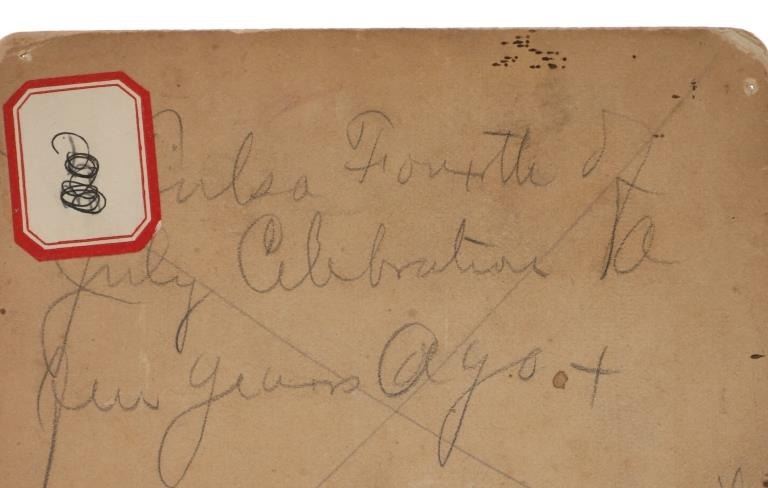 Tulsa Fourth of
July Celebration A
Few years Ago. +